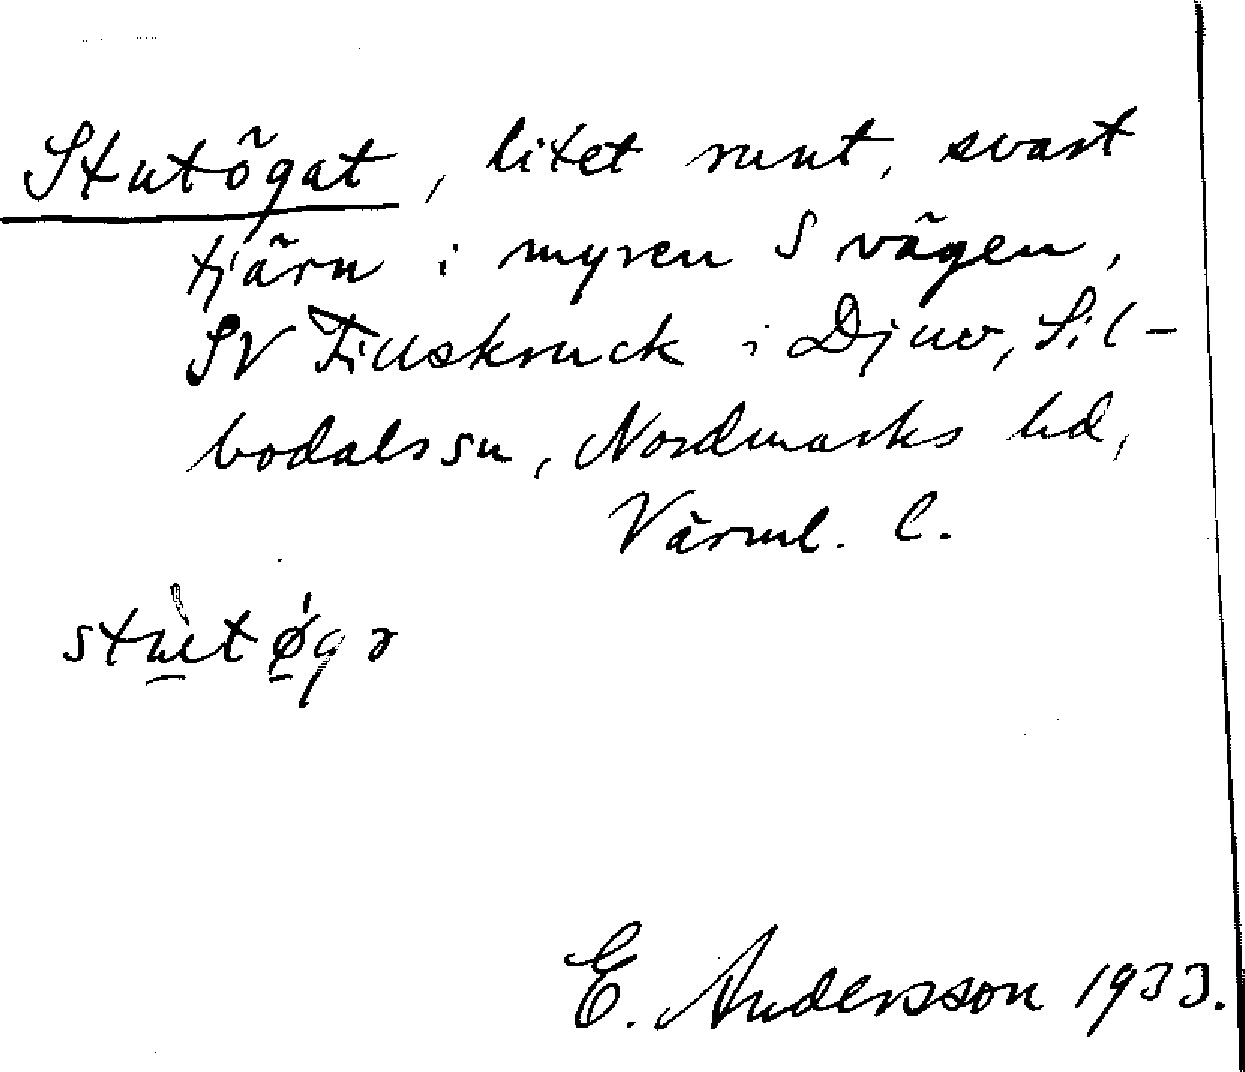 Stutögat, litet runt, svart
tjärn i myren S vägen,
SV Fillskruck i Djuv, Sil-
bodals sn, Nordmarks hd,
Värml. l.
stùtø̀gə
E. Andersson 1933.